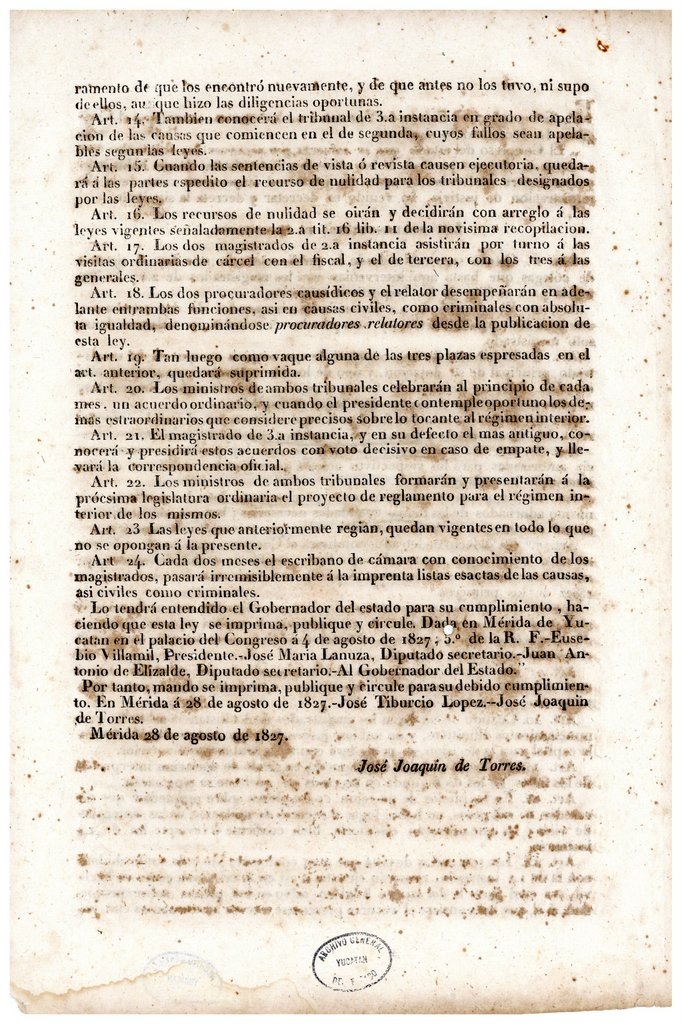 ramento de que los encontró nuevamente, y de que antes no los tuvo, ni supo
de ellos, aunque hizo las diligencias oportunas.
Art. 14. Tambien conocerá el tribunal de 3.a instancia en grado de apela-
cion de las causas que comiencen en el de segunda, cuyos fallos sean apela-
bles segun las leyes.
Art. 15. Cuando las sentencias de vista ó revista causen ejecutoria, queda-
rá á las partes espedito el recurso de nulidad para los tribunales designados
por las leyes.
Art. 16. Los recursos de nulidad se oirán y decidirán con arreglo á las
leyes vigentes señaladamente la 2.a tit. 16 lib. 11 de la novisima recopilacion.
Art. 17. Los dos magistrados de 2.a instancia asistirán por turno á las
visitas ordinarias de cárcel con el fiscal, y el de tercera, con los tres á las
generales.
Art. 18. Los dos procuradores causídicos y el relator desempeñarán en ade-
lante entrambas funciones, asi en causas civiles, como criminales con absolu-
ta igualdad, denominándose procuradores relatores desde la publicacion de
esta ley.
Art. 19. Tan luego como vaque alguna de las tres plazas espresadas en el
art. anterior, quedará suprimida.
Art. 20. Los ministros de ambos tribunales celebrarán al principio de cada
mes, un acuerdo ordinario, y cuando el presidente contemple oportuno los de-
mas estraordinarios que considere precisos sobre lo tocante al régimen interior.
Art. 21. El magistrado de 3.a instancia, y en su defecto el mas antiguo, co-
nocerá y presidirá estos acuerdos con voto decisivo en caso de empate, y lle-
vará la correspondencia oficial.
Art. 22. Los ministros de ambos tribunales formarán y presentarán á la
prócsima legislatura ordinaria el proyecto de reglamento para el régimen in-
terior de los mismos.
Art. 23 Las leyes que anteriormente regian, quedan vigentes en todo lo que
no se opongan á la presente.
Art 24. Cada dos meses el escribano de cámara con conocimiento de los
magistrados, pasará irremisiblemente á la imprenta listas esactas de las causas,
asi civiles como criminales.
Lo tendrá entendido el Gobernador del estado para su cumplimiento, ha-
ciendo que esta ley se imprima, publique y circule. Dada en Mérida de Yu-
catan en el palacio del Congreso á 4 de agosto de 1827, 5.º de la R. F.-Euse-
bio Villamil, Presidente.-José Maria Lanuza, Diputado secretario.-Juan An-
tonio de Elizalde, Diputado secretario.-Al Gobernador del Estado."
Por tanto, mando se imprima, publique y circule para su debido cumplimien-
to. En Mérida á 28 de agosto de 1827.-José Tiburcio Lopez.--José Joaquin
de Torres.
Mérida 28 de agosto de 1827.
José Joaquín de Torres.
ARCHIVO GENERAL
YUCATAN
DEL ESTADO